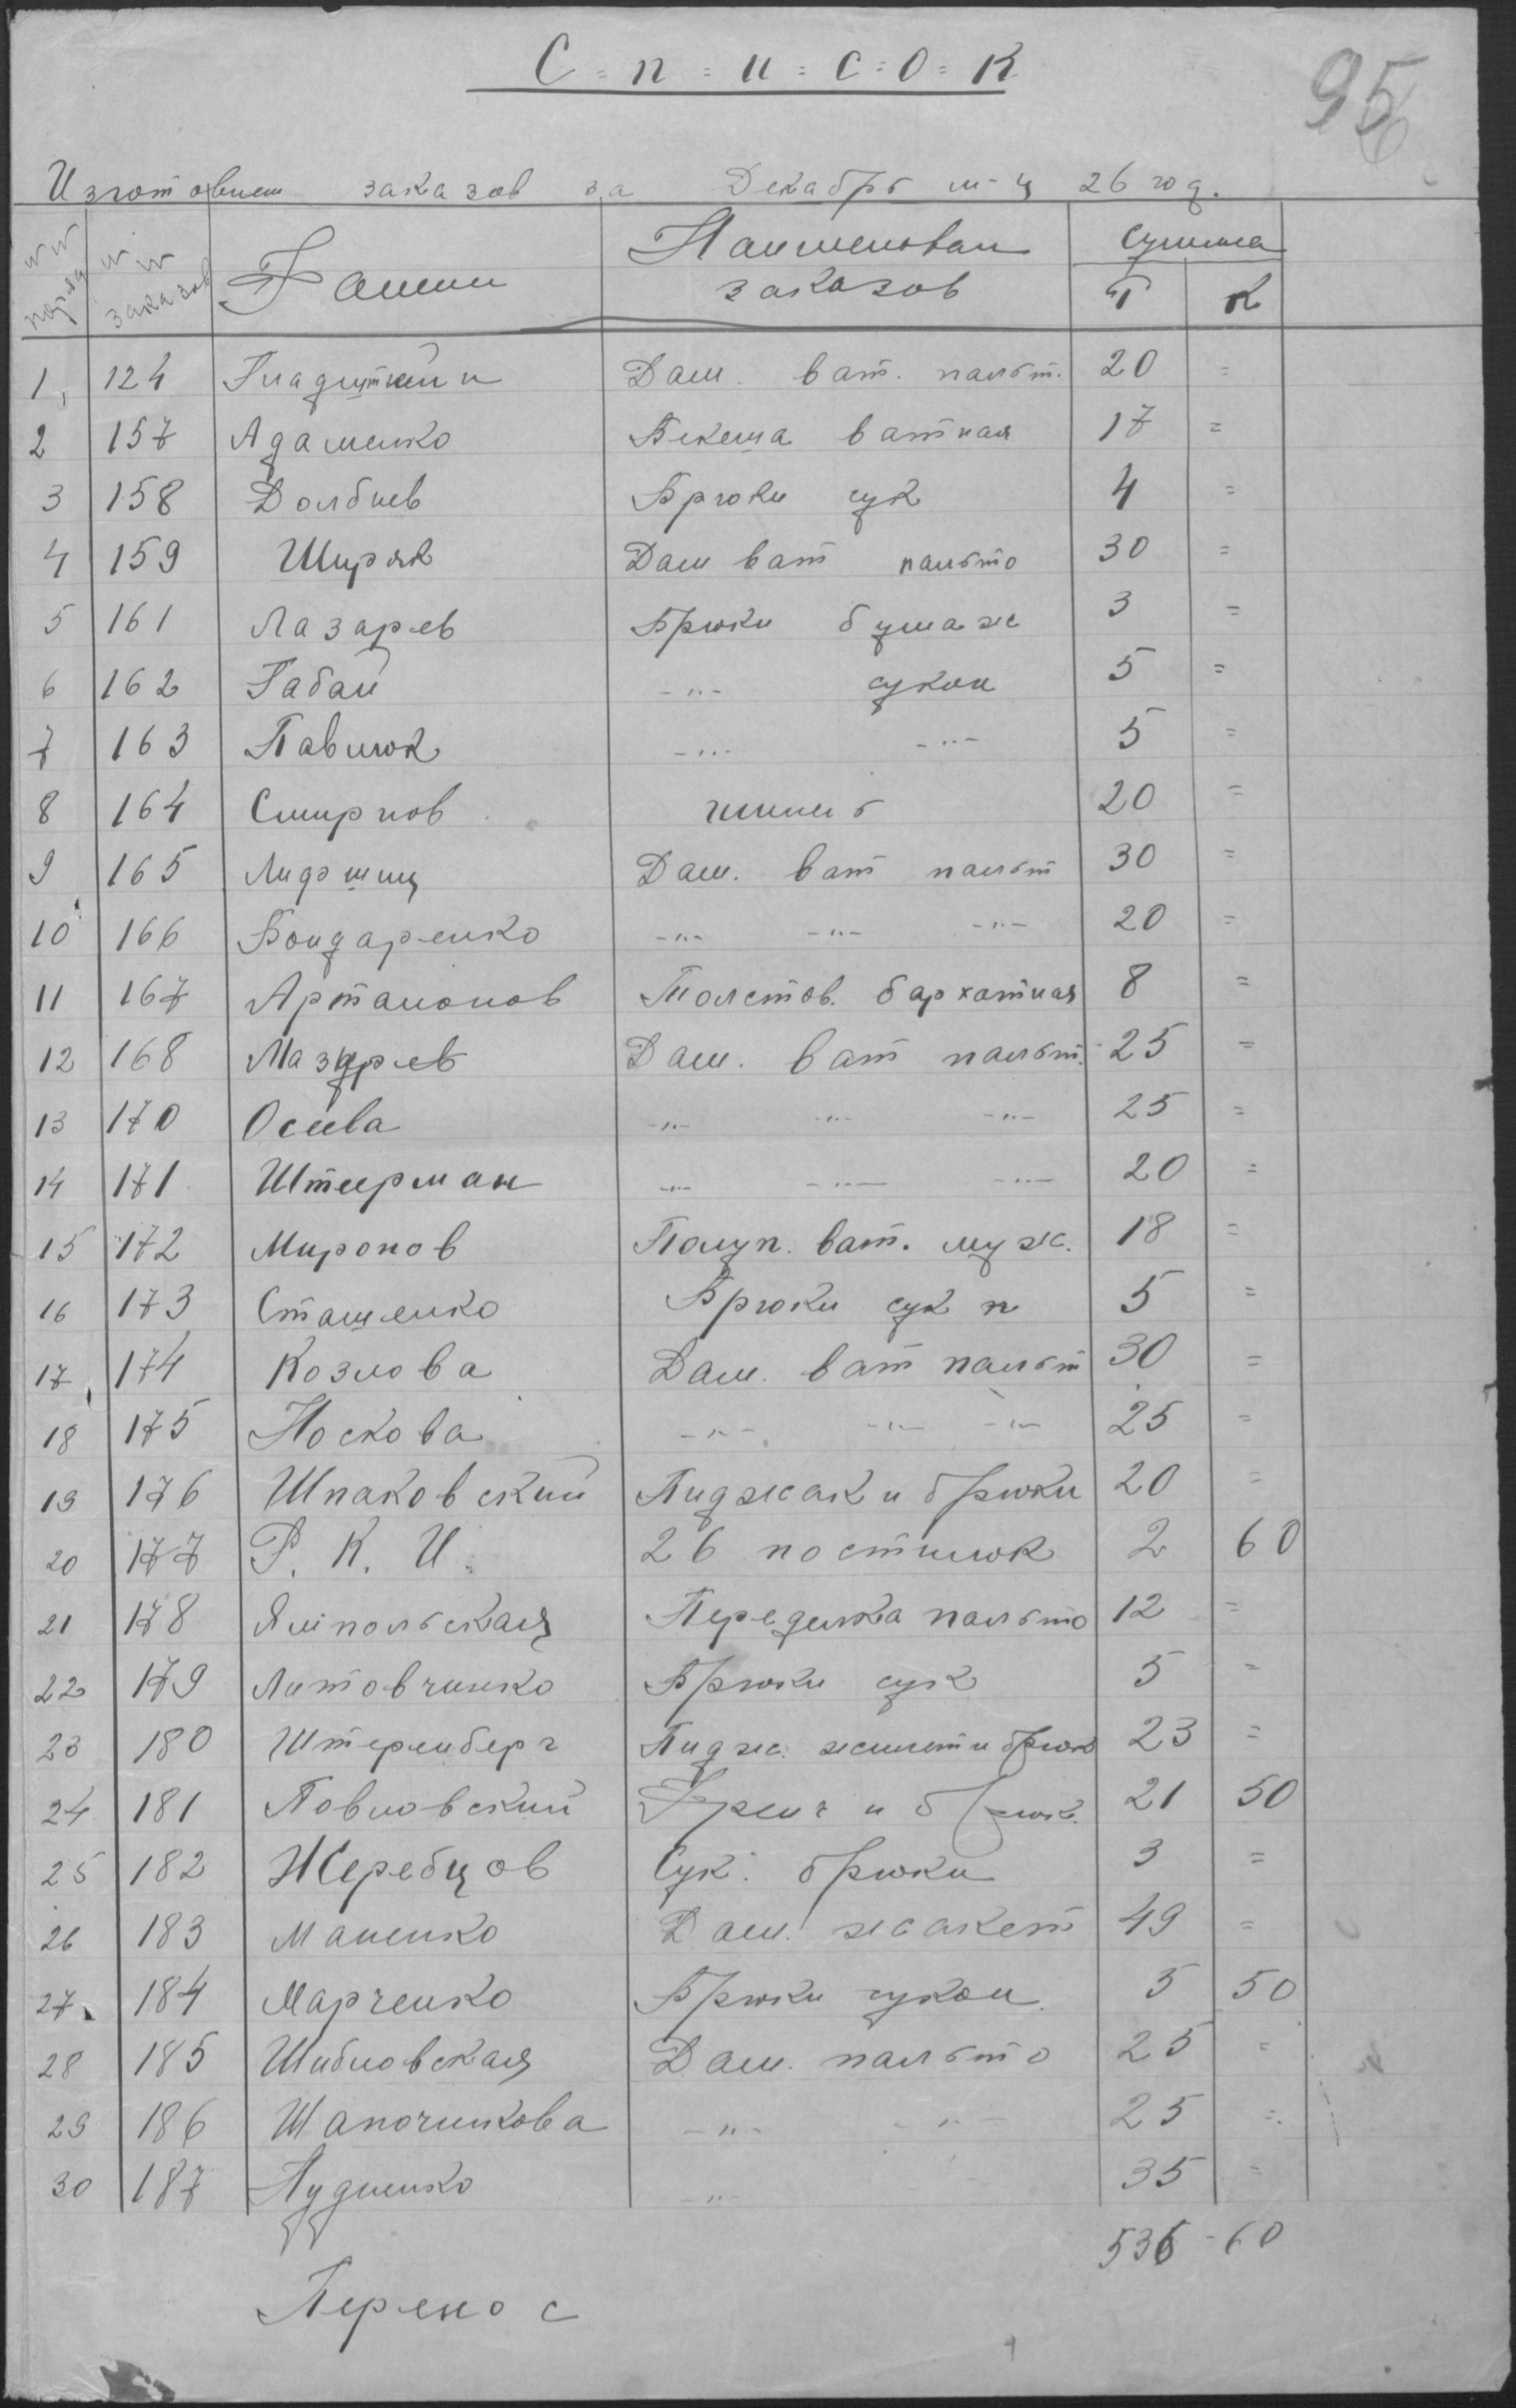 С=п=и=с=о=к
95
Изготовлен заказов за Декабрь м-ц 26 год.
№№ поряд №№ заказов Фамил Наименован заказов Сумма Р К
1, 124 Дам. ват. пальт. 20 =
2 157 Адаменко Бекеша ватная 17 =
3 158 Долбнев Брюки сук 4 =
4 159 Ширяк Дам ват пальто 30 =
5 161 Лазарев Брюки бумаж 3 =
6 162 Габай -"- сукон 5 =
7 163 Павлюк -"- -"- 5 =
8 164 Смирнов 20 =
9 165 Лифшиц Дам. ват пальт 30 =
10 166 Бондаренко -"- -"- -"- 20 =
11 167 Артамонов Толстов. бархатная 8 =
12 168 Дам. ват пальт. 25 =
13 170 Осеева -"- -"- -"- 25 =
14 171 Штерман -"- -"- -"- 20 =
15 172 Миронов Полуп. ват. муж. 18 =
16 173 Сташенко Брюки сук н 5 =
17 174 Козлова Дам. ват пальт 30 =
18 175 Носкова -"- -"- -"- 25 =
19 176 Шпаковский Пиджак и брюки 20 =
20 177 Р. К. И. 26 постилок 2 60
21 178 Ямпольская Переделка пальто 12 =
22 179 Литовчинко Брюки сук 5 =
23 180 Штеренберг Пидж. жилет и брюк 23 =
24 181 Повловский Френч и брюк. 21 50
25 182 Жеребцов Сук. брюки 3 =
26 183 Маненко Дам. жакет 49 =
27 184 Марченко Брюки сукон. 5 50
28 185 Шибловская Дам. пальто 25 =
29 186 Шапочникова -"- -"- 25 =
30 187 Дудненко -"- 35 =
536-60
Перенос